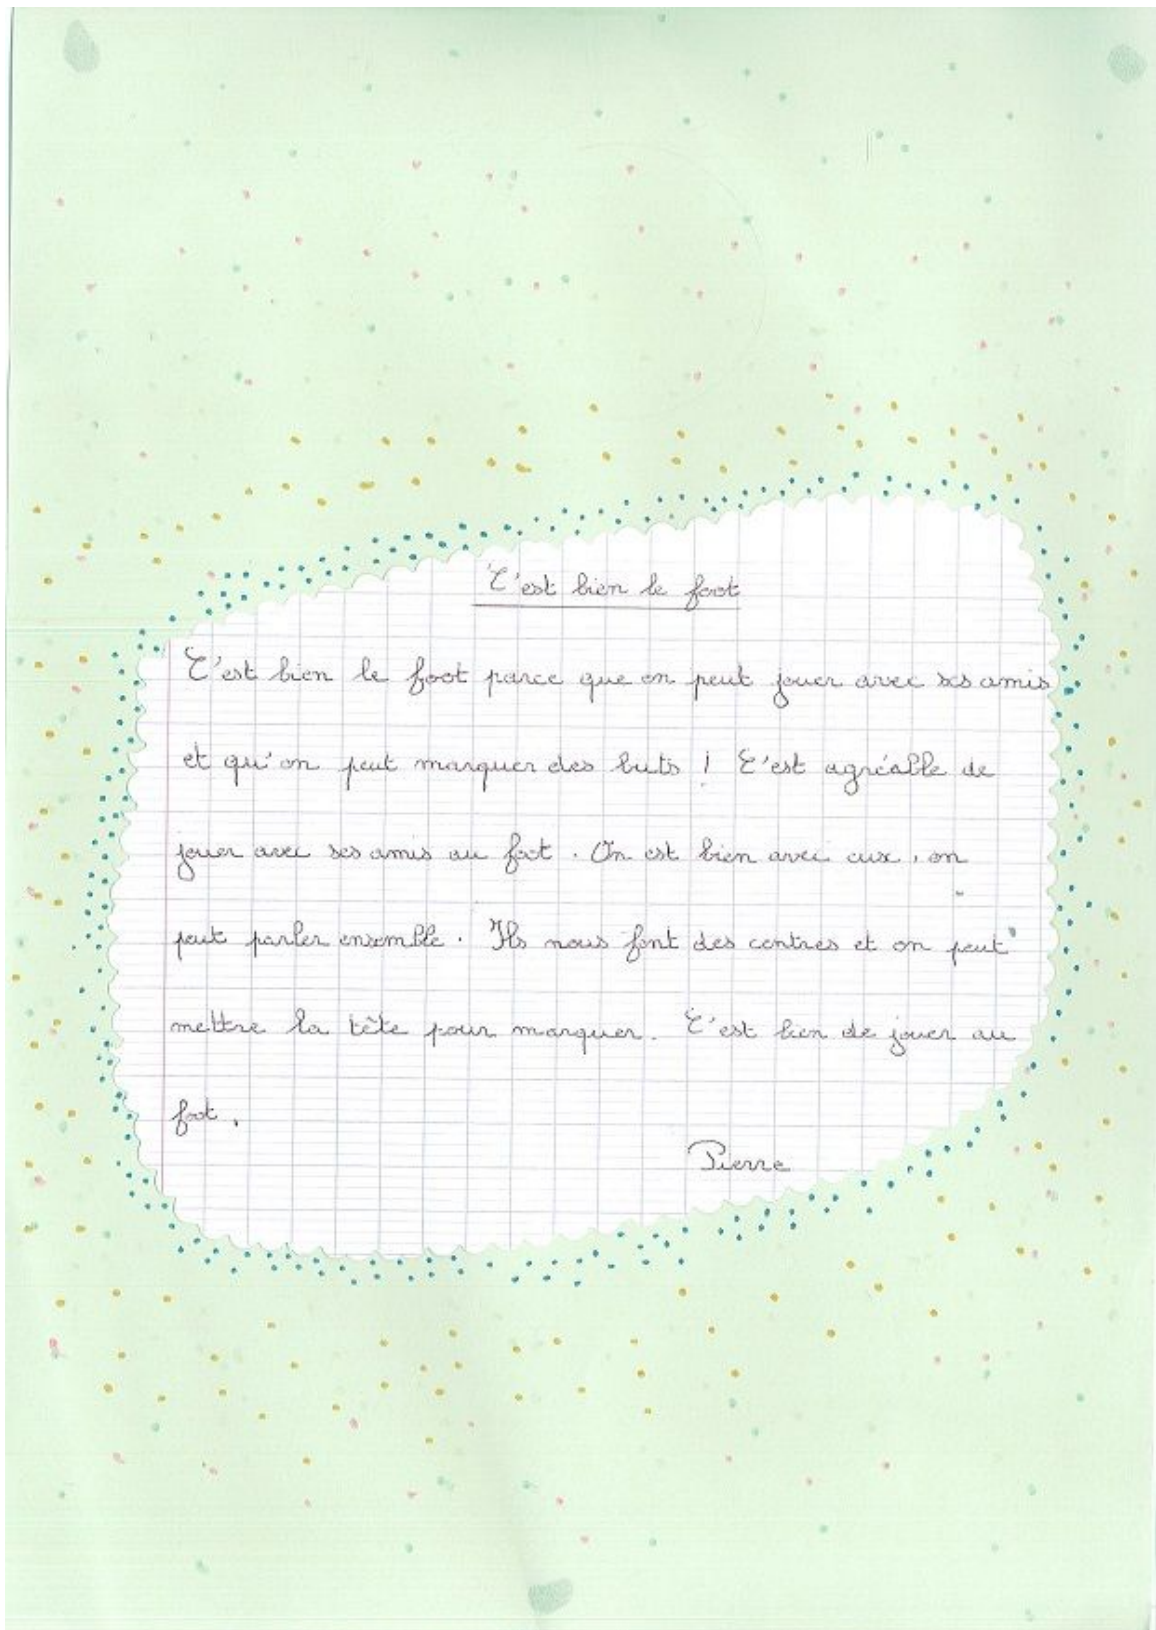 C'est bien le foot
C'est bien le foot parce que on peut jouer avec ses amis
et qu'on peut marquer des buts ! C'est agréable de
jouer avec ses amis au foot. On est bien avec eux, on
peut parler ensemble. Ils nous font des centres et on peut
mettre la tête pour marquer. C'est bien de jouer au
foot.
Pierre